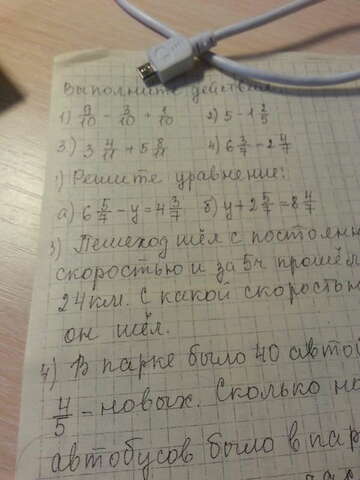 Выполните действия:
1) 9/10 - 3/10 + 1/10 2) 5 - 1 2/5
3) 3 4/11 + 5 8/11 4) 6 3/7 - 2 4/7
1) Решите уравнение:
а) 6 5/7 - y = 4 3/7 б) y + 2 5/7 = 8 4/7
3) Пешеход шёл с постоянн
скоростью и за 5ч прошёл
24 км. С какой скоростью
он шёл.
4) В парке было 40 автоб
4/5 - новых. Сколько но
автобусов было в пар